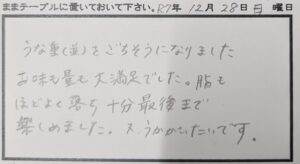 ままテーブルに置いておいて下さい。R7年12月28日日曜日
うな重(並)をごちそうになりました
お味も量も大満足でした。脂も
ほどよく落ち十分最後まで
楽しめました。又うかがいたいです。